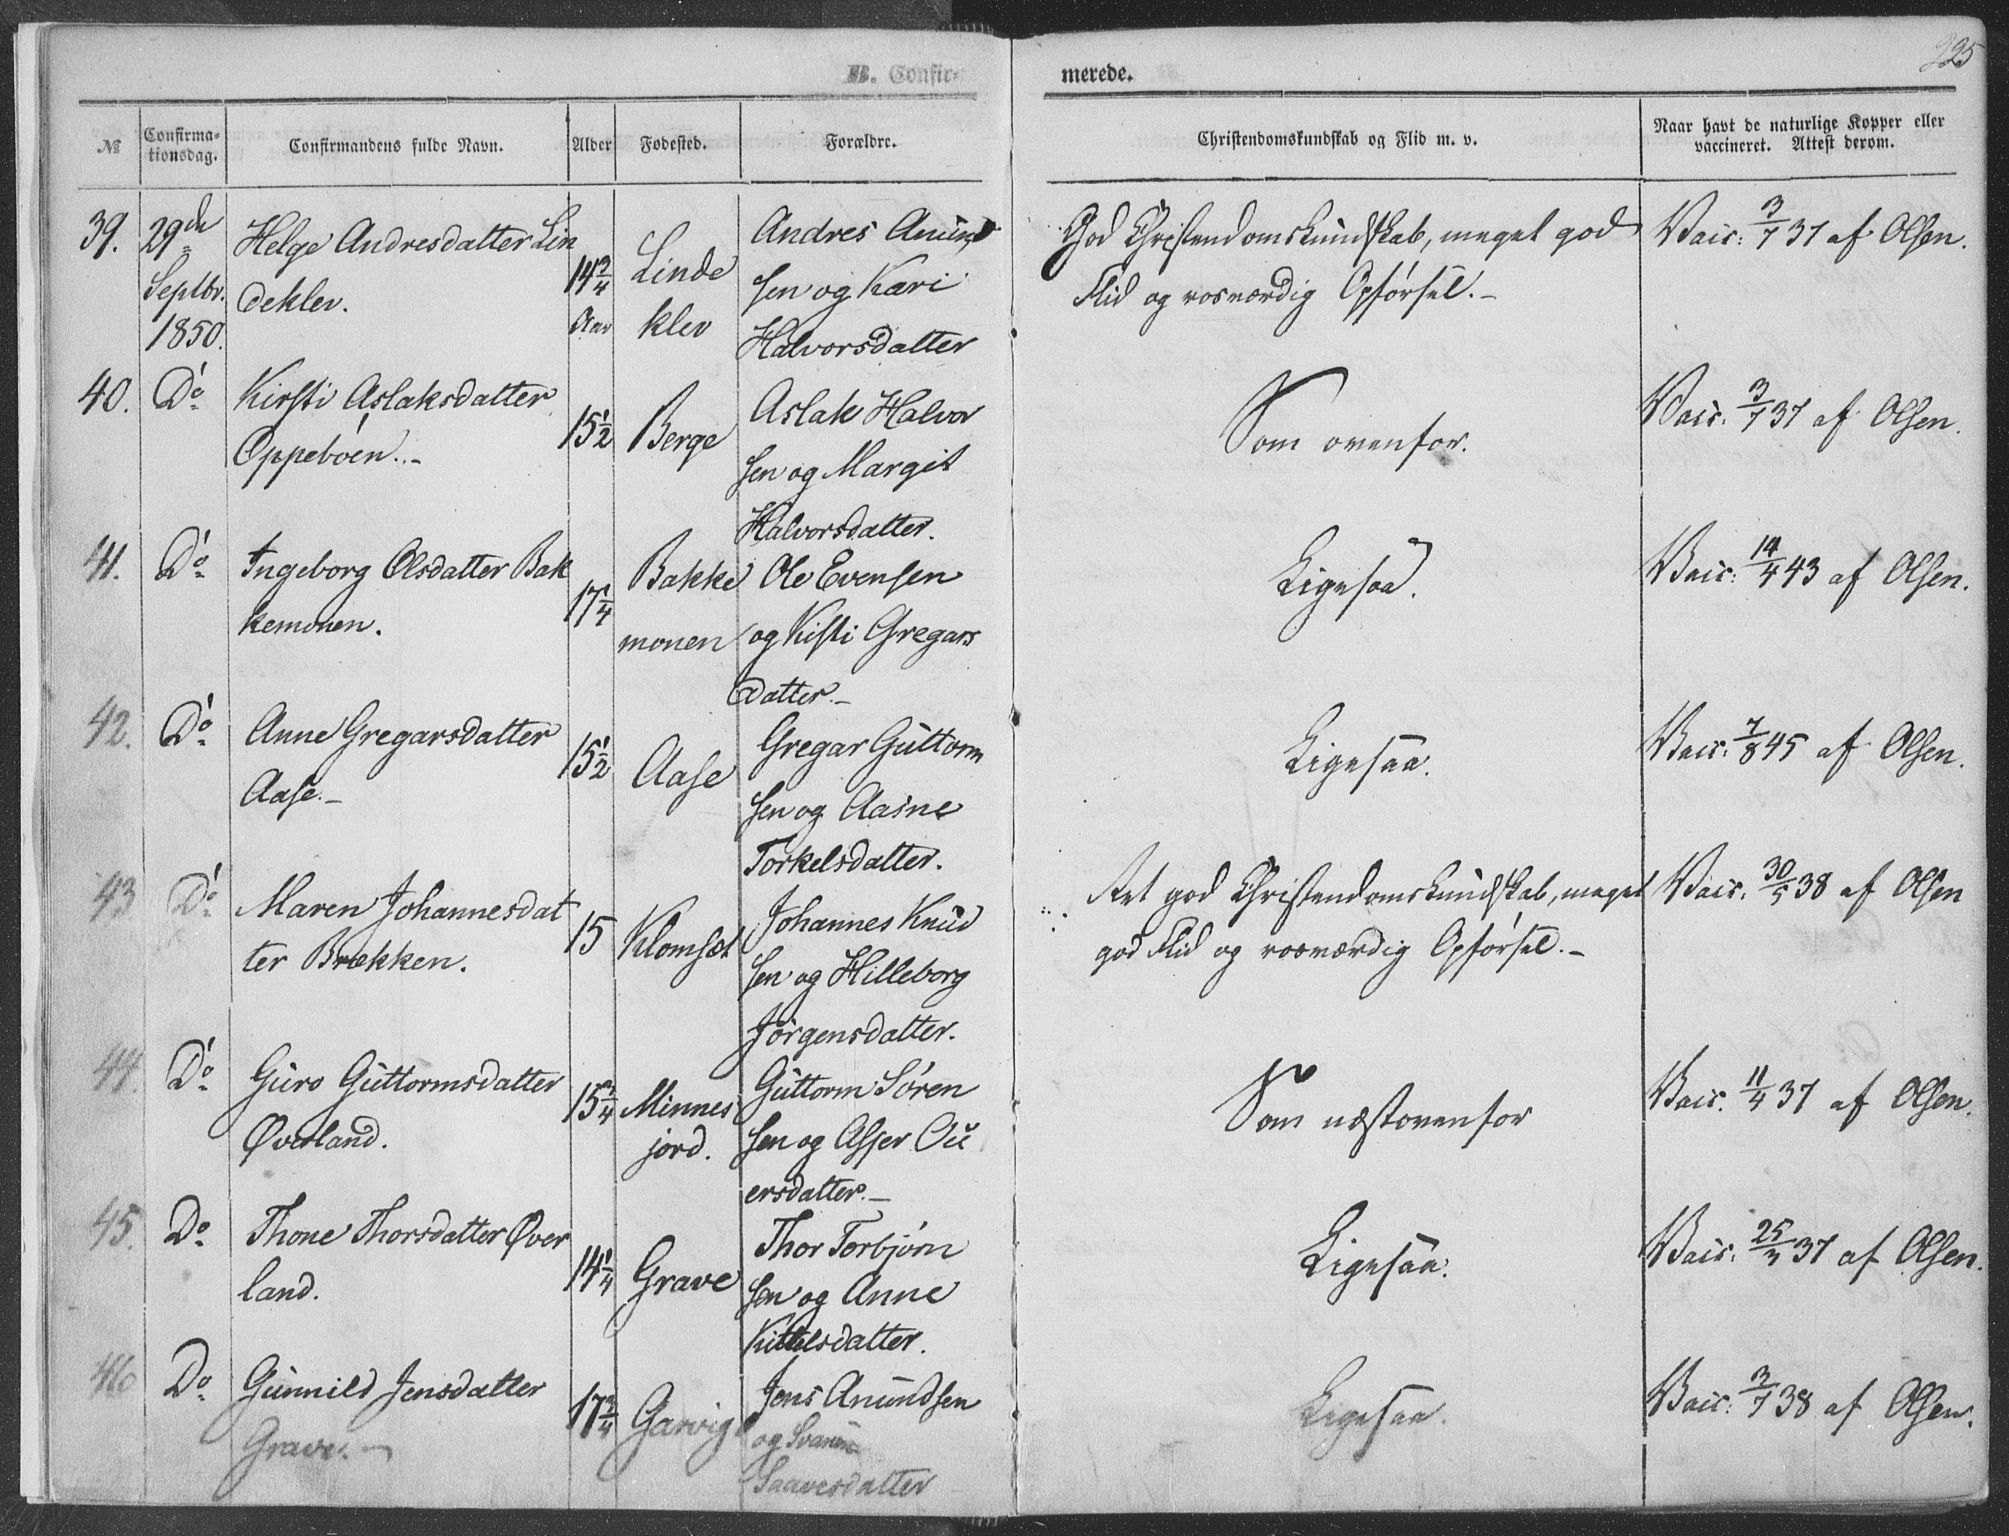 225
B. Confir-
merede.
№
Confirma-
tionsdag.
Confirmandens fulde Navn.
Alder
Fødested.
Forældre.
Christendomskundskab og Flid m. v.
Naar havt de naturlige Kopper eller
vaccineret. Attest derom.
39.
29de
Septbr.
1850.
Helge Andresdatter Lin
deklev.
14 3/4
Aar
Linde
klev
Andres Anund
sen og Kari
Halvorsdatter
God Christendomskundskab, meget god
Flid og rosværdig Opførsel.-
Vaic: 3/7 37 af Olsen.
40.
Do
Kirsti Aslaksdatter
Oppebøen.-
15 1/2
Berge
Aslak Halvor
sen og Margit
Halvorsdatter.
Som ovenfor.
Vaic. 3/7 37 af Olsen.
41.
Do
Ingeborg Olsdatter Bak
kemonen.
17 1/4
Bakke
monen
Ole Evensen
og Kisti Gregars
datter.-
Ligesaa.
Vaic: 14/4 43 af Olsen.
42.
Do
Anne Gregarsdatter
Aase.-
15 1/2
Aase
Gregar Guttorm
sen og Aasne
Torkelsdatter.
Ligesaa.
Vaic: 7/8 45 af Olsen.
43
Do
Maren Johannesdat
ter Brækken.
15
Klomset
Johannes Knud
sen og Hilleborg
Jørgensdatter.
Ret god Christendomskundskab, meget
god Flid og rosværdig Opførsel.-
Vaic. 30/5 38 af Olsen
44.
Do
Guro Guttormsdatter
Øverland.
15 1/4
Minnes
jord.
Guttorm Søren
sen og Asser Ou
ersdatter.-
Som næstovenfor
Vaic. 11/4 37 af Olsen.
45.
Do
Thone Thorsdatter Øver
land.
14 1/4
Grave
Thor Torbjørn
sen og Anne
Kittelsdatter.
Ligesaa.
Vaic: 25/3 37 af Olsen.
46
Do
Gunnild Jensdatter
Grave.-
17 3/4
Garvig
Jens Anundsen
og
Saavesdatter
Ligesaa.
Vaic: 3/7 38 af Olsen.